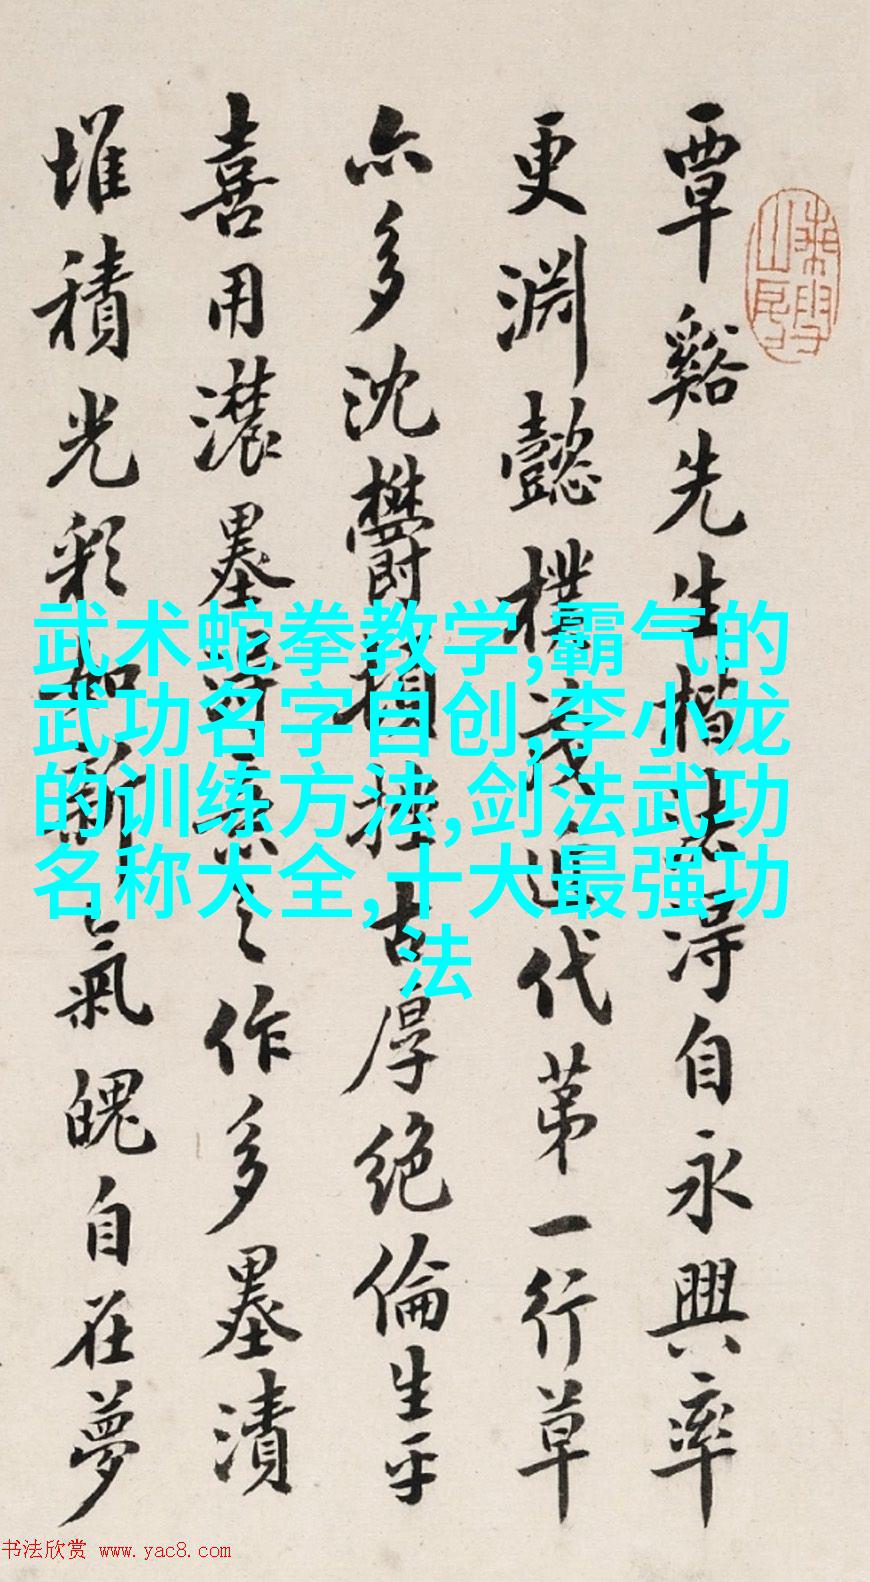 覃谿先生楷法得自永興率
更淵懿樸茂近代第一行草
亦多沈欝頓挫古厚絶倫生平
喜用濃墨所書之作多墨漬
堆積光彩如新氣魄自在夢
武术蛇拳教学,霸气的
武功名字自创,李小龙
的训练方法,剑法武功
名称大全,十大最强功
法
书法欣赏 www.yac8.com